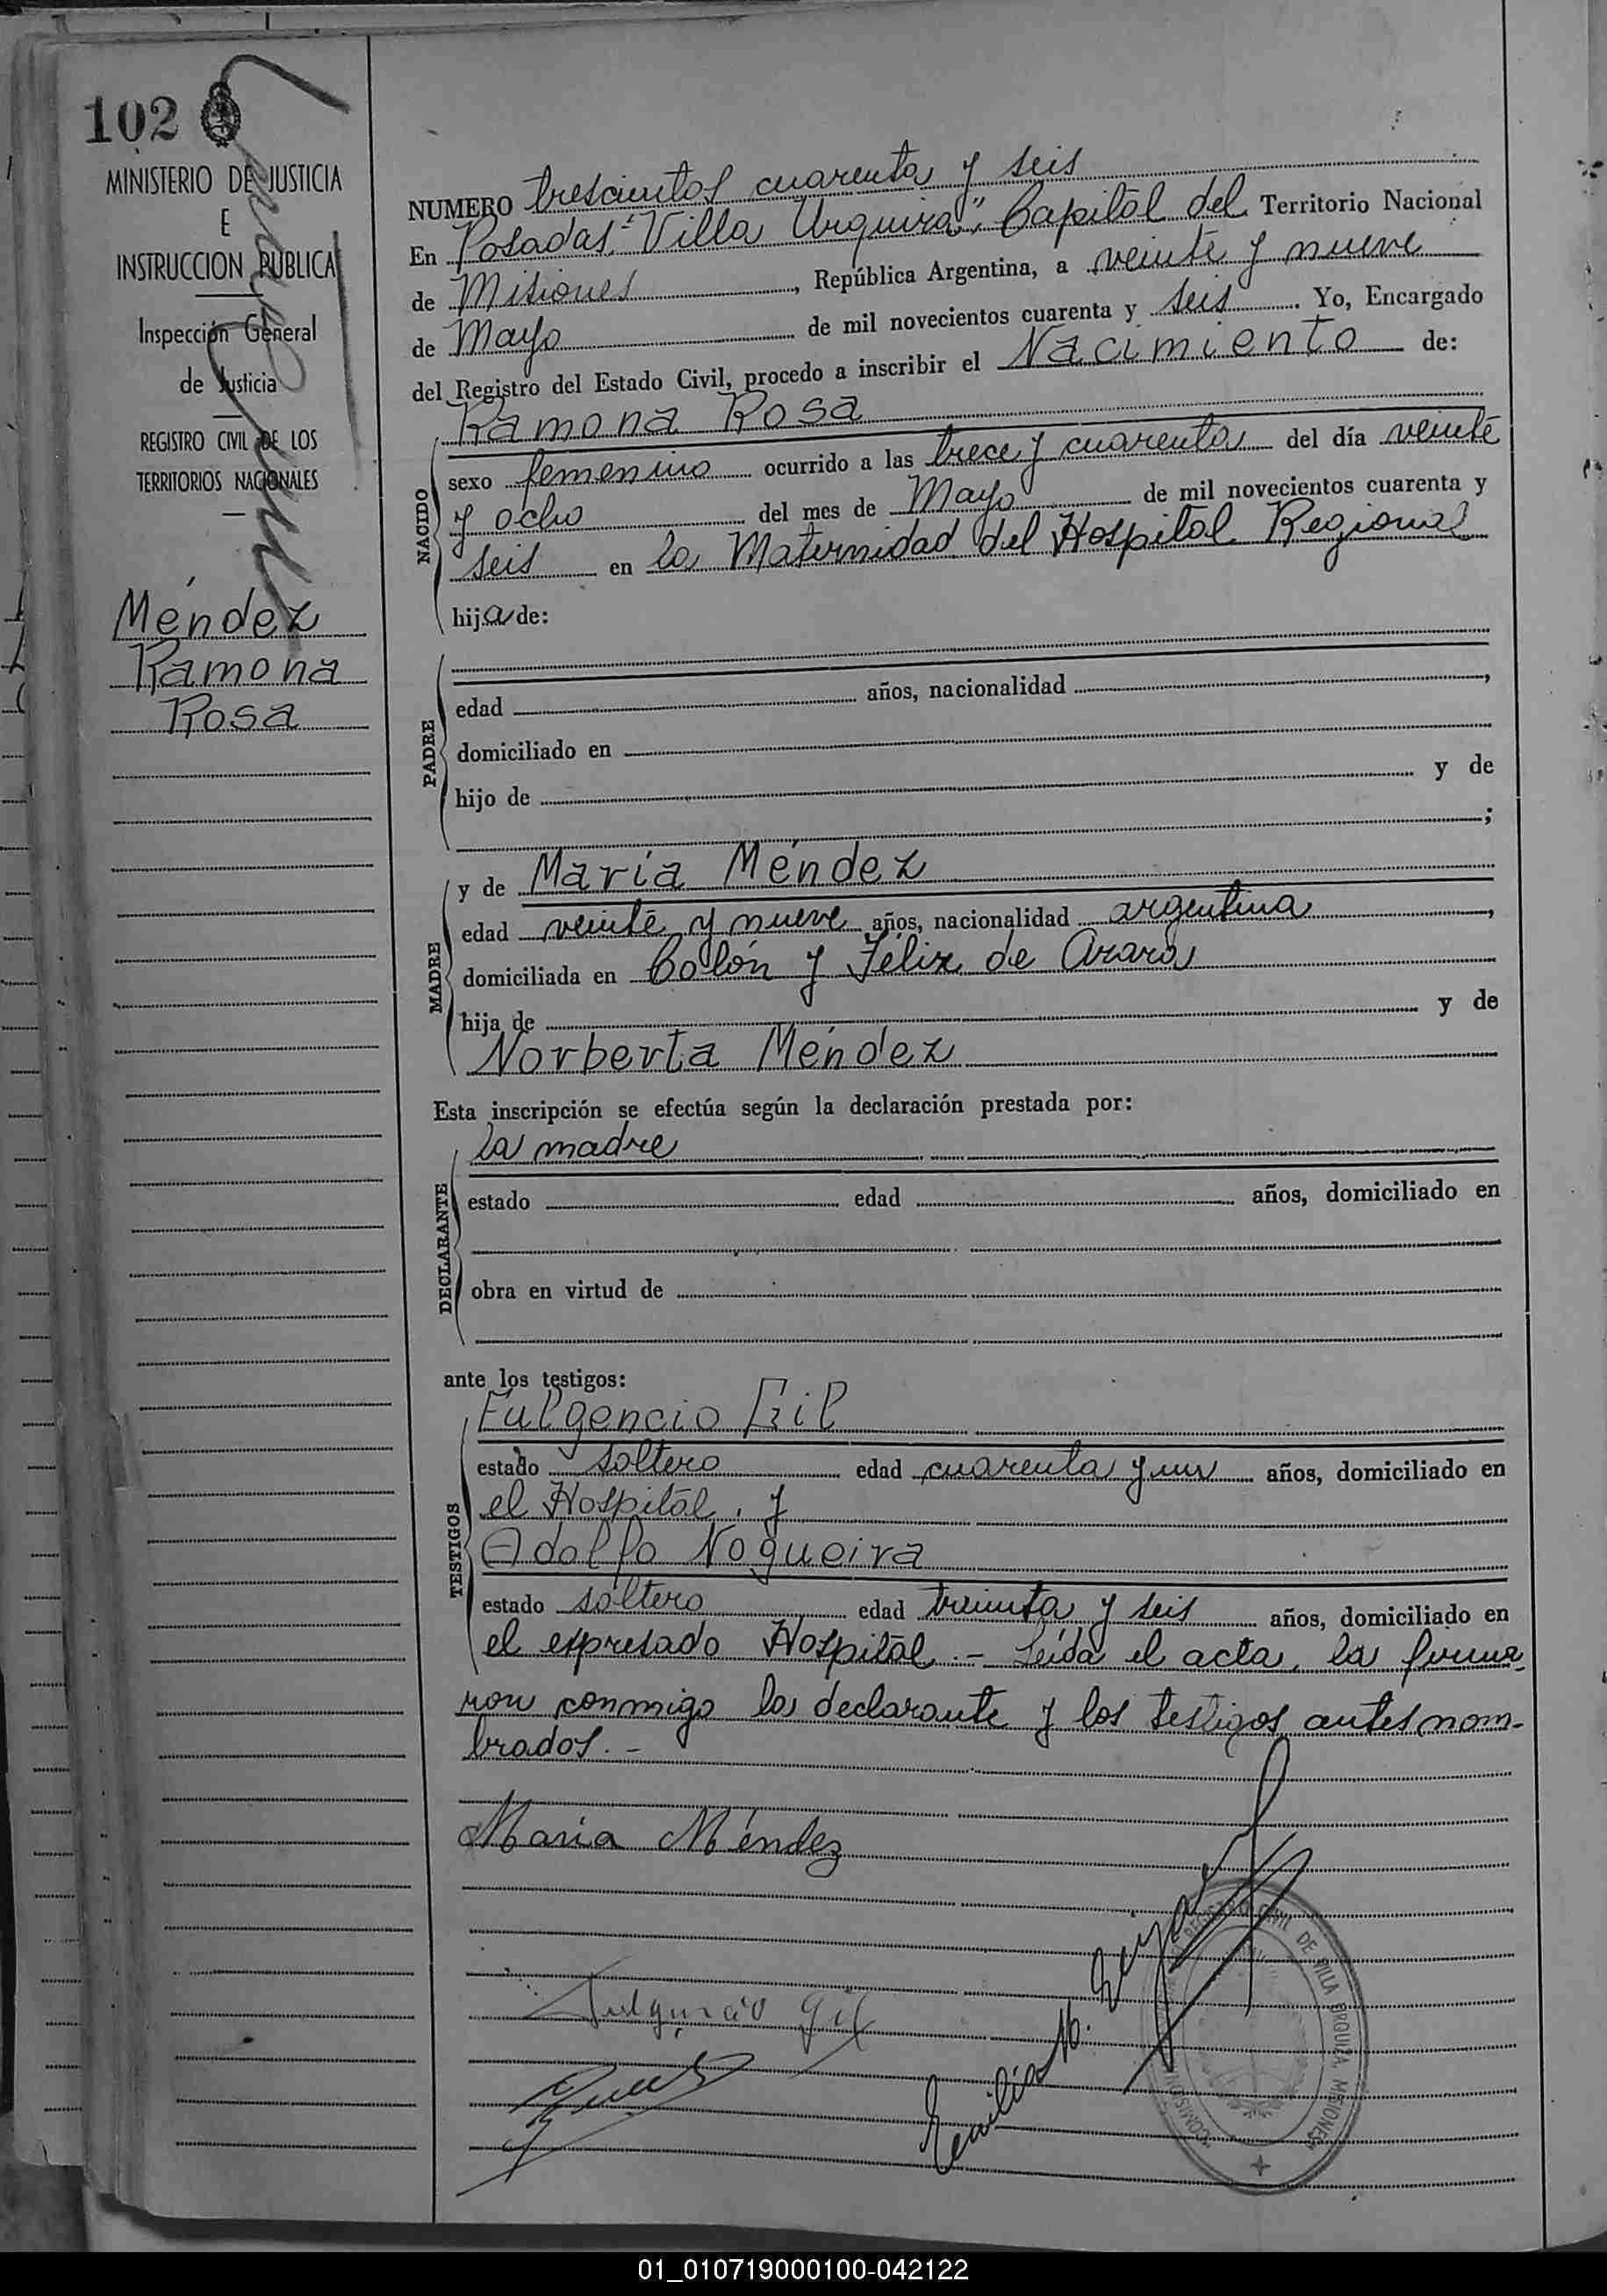 102
MINISTERIO DE JUSTICIA
E
INSTRUCCION PUBLICA
Inspección General
de Justicia
REGISTRO CIVIL DE LOS
TERRITORIOS NACIONALES
Méndez
Ramona
Rosa
NUMERO trescientos cuarenta y seis
En Posadas-"Villa Urquiza", Capital del Territorio Nacional
de Misiones, República Argentina, a veinte y nueve
de Mayo de mil novecientos cuarenta y seis. Yo, Encargado
del Registro del Estado Civil, procedo a inscribir el Nacimiento de:
NACIDO
Ramona Rosa
sexo femenino ocurrido a las trece y cuarenta del día veinte
y ocho del mes de Mayo de mil novecientos cuarenta y
seis en la Maternidad del Hospital Regional
hija de:
PADRE
edad años, nacionalidad ,
domiciliado en
hijo de y de
;
MADRE
y de María Méndez
edad veinte y nueve años, nacionalidad argentina,
domiciliada en Colón y Félix de Azara
hija de y de
Norberta Méndez
Esta inscripción se efectúa según la declaración prestada por:
DECLARANTE
la madre
estado edad años, domiciliado en
obra en virtud de
ante los testigos:
TESTIGOS
Fulgencio Gil
estado soltero edad cuarenta y un años, domiciliado en
el Hospital, y
Adolfo Nogueira
estado soltero edad treinta y seis años, domiciliado en
el expresado Hospital.- Leída el acta, la firma-
ron conmigo la declarante y los testigos antes nom-
brados.-
María Méndez
Fulgencio Gil
Emilia N.
REGISTRO CIVIL DE VILLA URQUIZA MISIONES
01_010719000100-042122